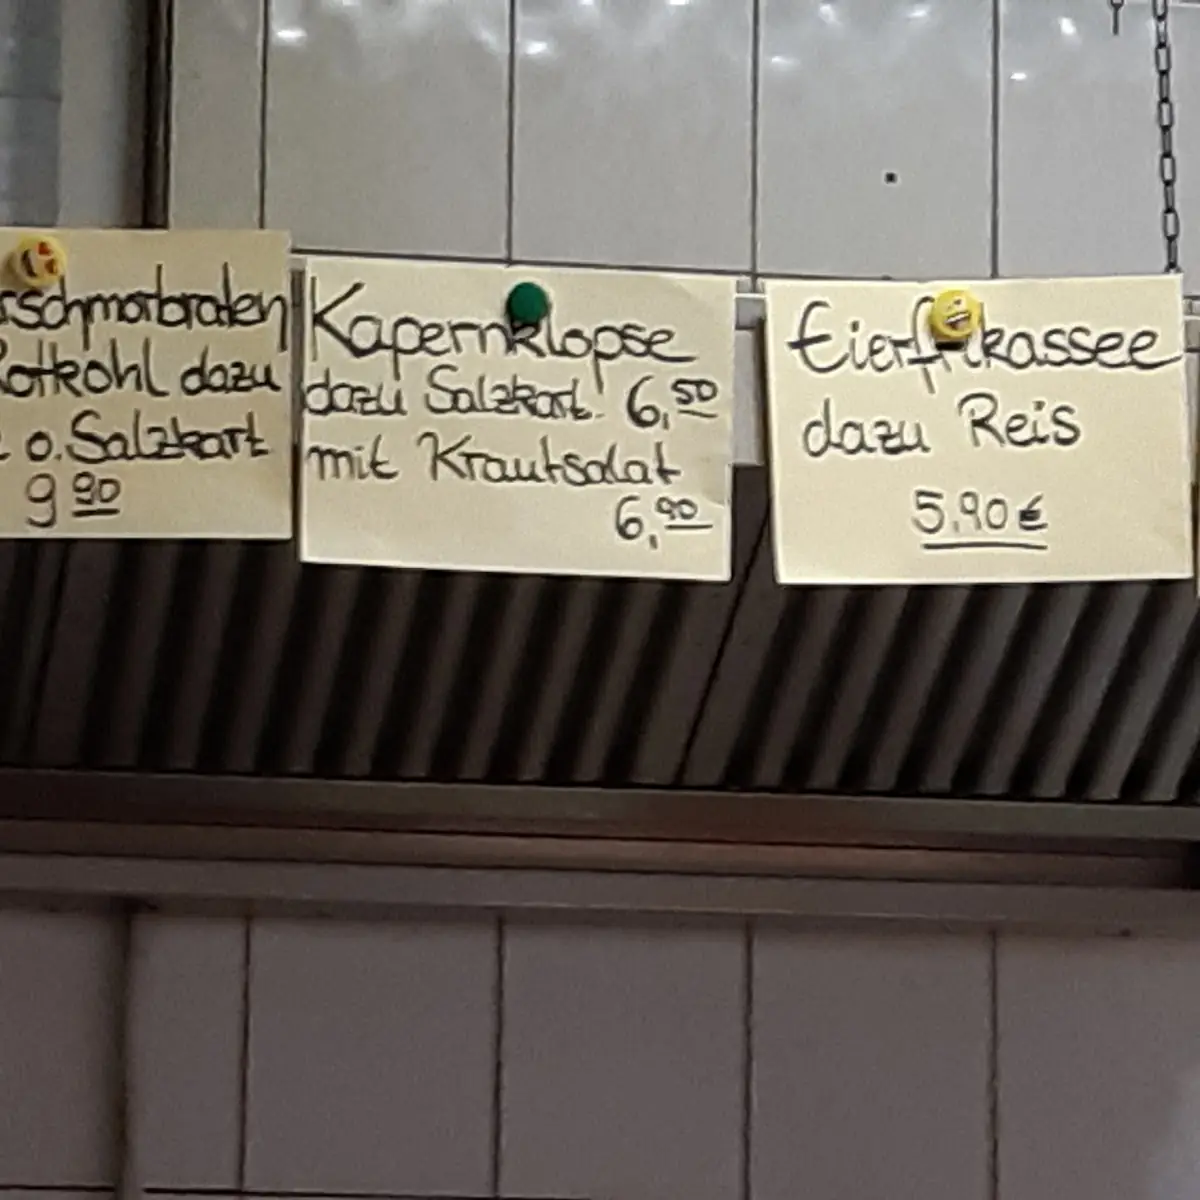 rschmorbraten
Rotkohl dazu
o. Salzkart
9 90
Kapernklopse
dazu Salzkart. 6,50
mit Krautsalat
6,90
Eierfrikassee
dazu Reis
5.90€